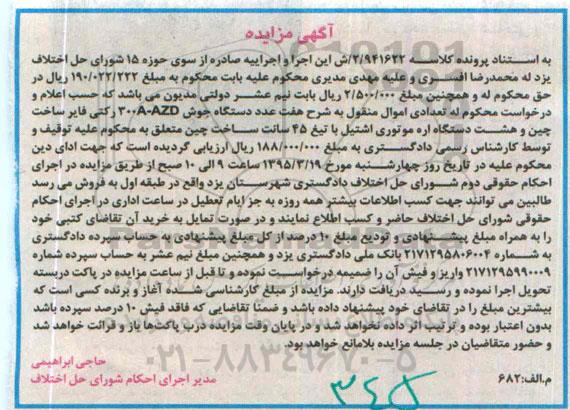 آگهی مزایده
به استناد پرونده کلاسه ۲/۹۴۱۶۲۲/ش این اجرا و اجراییه صادره از سوی حوزه ۱۵ شورای حل اختلاف
یزد له محمدرضا افسری و علیه مهدی مدیری محکوم علیه بابت محکوم به مبلغ ۱۹۰/۰۲۲/۲۲۲ ریال در
حق محکوم له و همچنین مبلغ ۲/۵۰۰/۰۰۰ ریال بابت نیم عشر دولتی مدیون می باشد که حسب اعلام و
درخواست محکوم له تعدادی اموال منقول به شرح هفت عدد دستگاه جوش ۳۰۰A-AZD رکتی فایر ساخت
چین و هشت دستگاه اره موتوری اشتیل با تیغ ۴۵ سانت ساخت چین متعلق به محکوم علیه توقیف و
توسط کارشناس رسمی دادگستری به مبلغ ۱۸۸/۰۰۰/۰۰۰ ریال ارزیابی گردیده است که جهت ادای دین
محکوم علیه در تاریخ روز چهارشنبه مورخ ۱۳۹۵/۳/۱۹ ساعت ۹ الی ۱۰ صبح از طریق مزایده در اجرای
احکام حقوقی دوم شورای حل اختلاف دادگستری شهرستان یزد واقع در طبقه اول به فروش می رسد
طالبین می توانند جهت کسب اطلاعات بیشتر همه روزه به جز ایام تعطیل در ساعت اداری در اجرای احکام
حقوقی شورای حل اختلاف حاضر و کسب اطلاع نمایند و در صورت تمایل به خرید آن تقاضای کتبی خود
را به همراه مبلغ پیشنهادی و تودیع مبلغ ۱۰ درصد از کل مبلغ پیشنهادی به حساب سپرده دادگستری
به شماره ۲۱۷۱۲۹۵۸۰۶۰۰۴ بانک ملی دادگستری یزد و همچنین مبلغ نیم عشر به حساب سپرده شماره
۲۱۷۱۲۹۵۹۹۰۰۰۹ واریز و فیش آن را ضمیمه درخواست نموده و تا قبل از ساعت مزایده در پاکت دربسته
تحویل اجرا نموده و رسید دریافت دارند. مزایده از مبلغ کارشناسی شده آغاز و برنده کسی است که
بیشترین مبلغ را در تقاضای خود پیشنهاد داده باشد و ضمنا تقاضایی که فاقد فیش ۱۰ درصد سپرده باشد
بدون اعتبار بوده و ترتیب اثر داده نخواهد شد و در پایان وقت مزایده درب پاکت‌ها باز و قرائت خواهد شد
و حضور متقاضیان در جلسه مزایده بلامانع خواهد بود.
حاجی ابراهیمی
مدیر اجرای احکام شورای حل اختلاف
م.الف:۶۸۲
۰۲۱-۸۸۳۴۹۶۷۰-۵